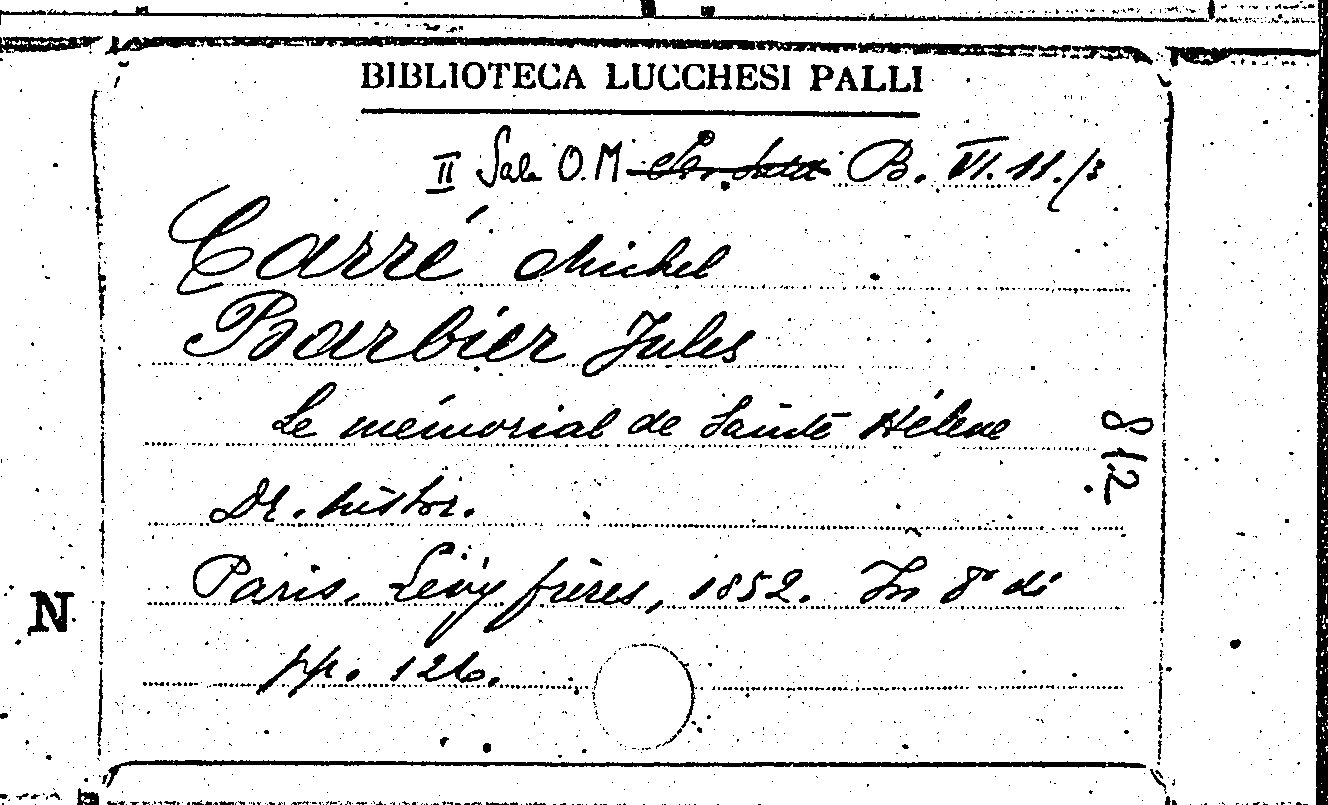 BIBLIOTECA LUCCHESI PALLI
II Sala O.M B. VI.11./3
Carré Michel
Barbier Jules
Le mémorial de Sainte Hélène
Dr. histor.
Paris, Lévy frères, 1852. In 8° di
pp. 126.
812.
N